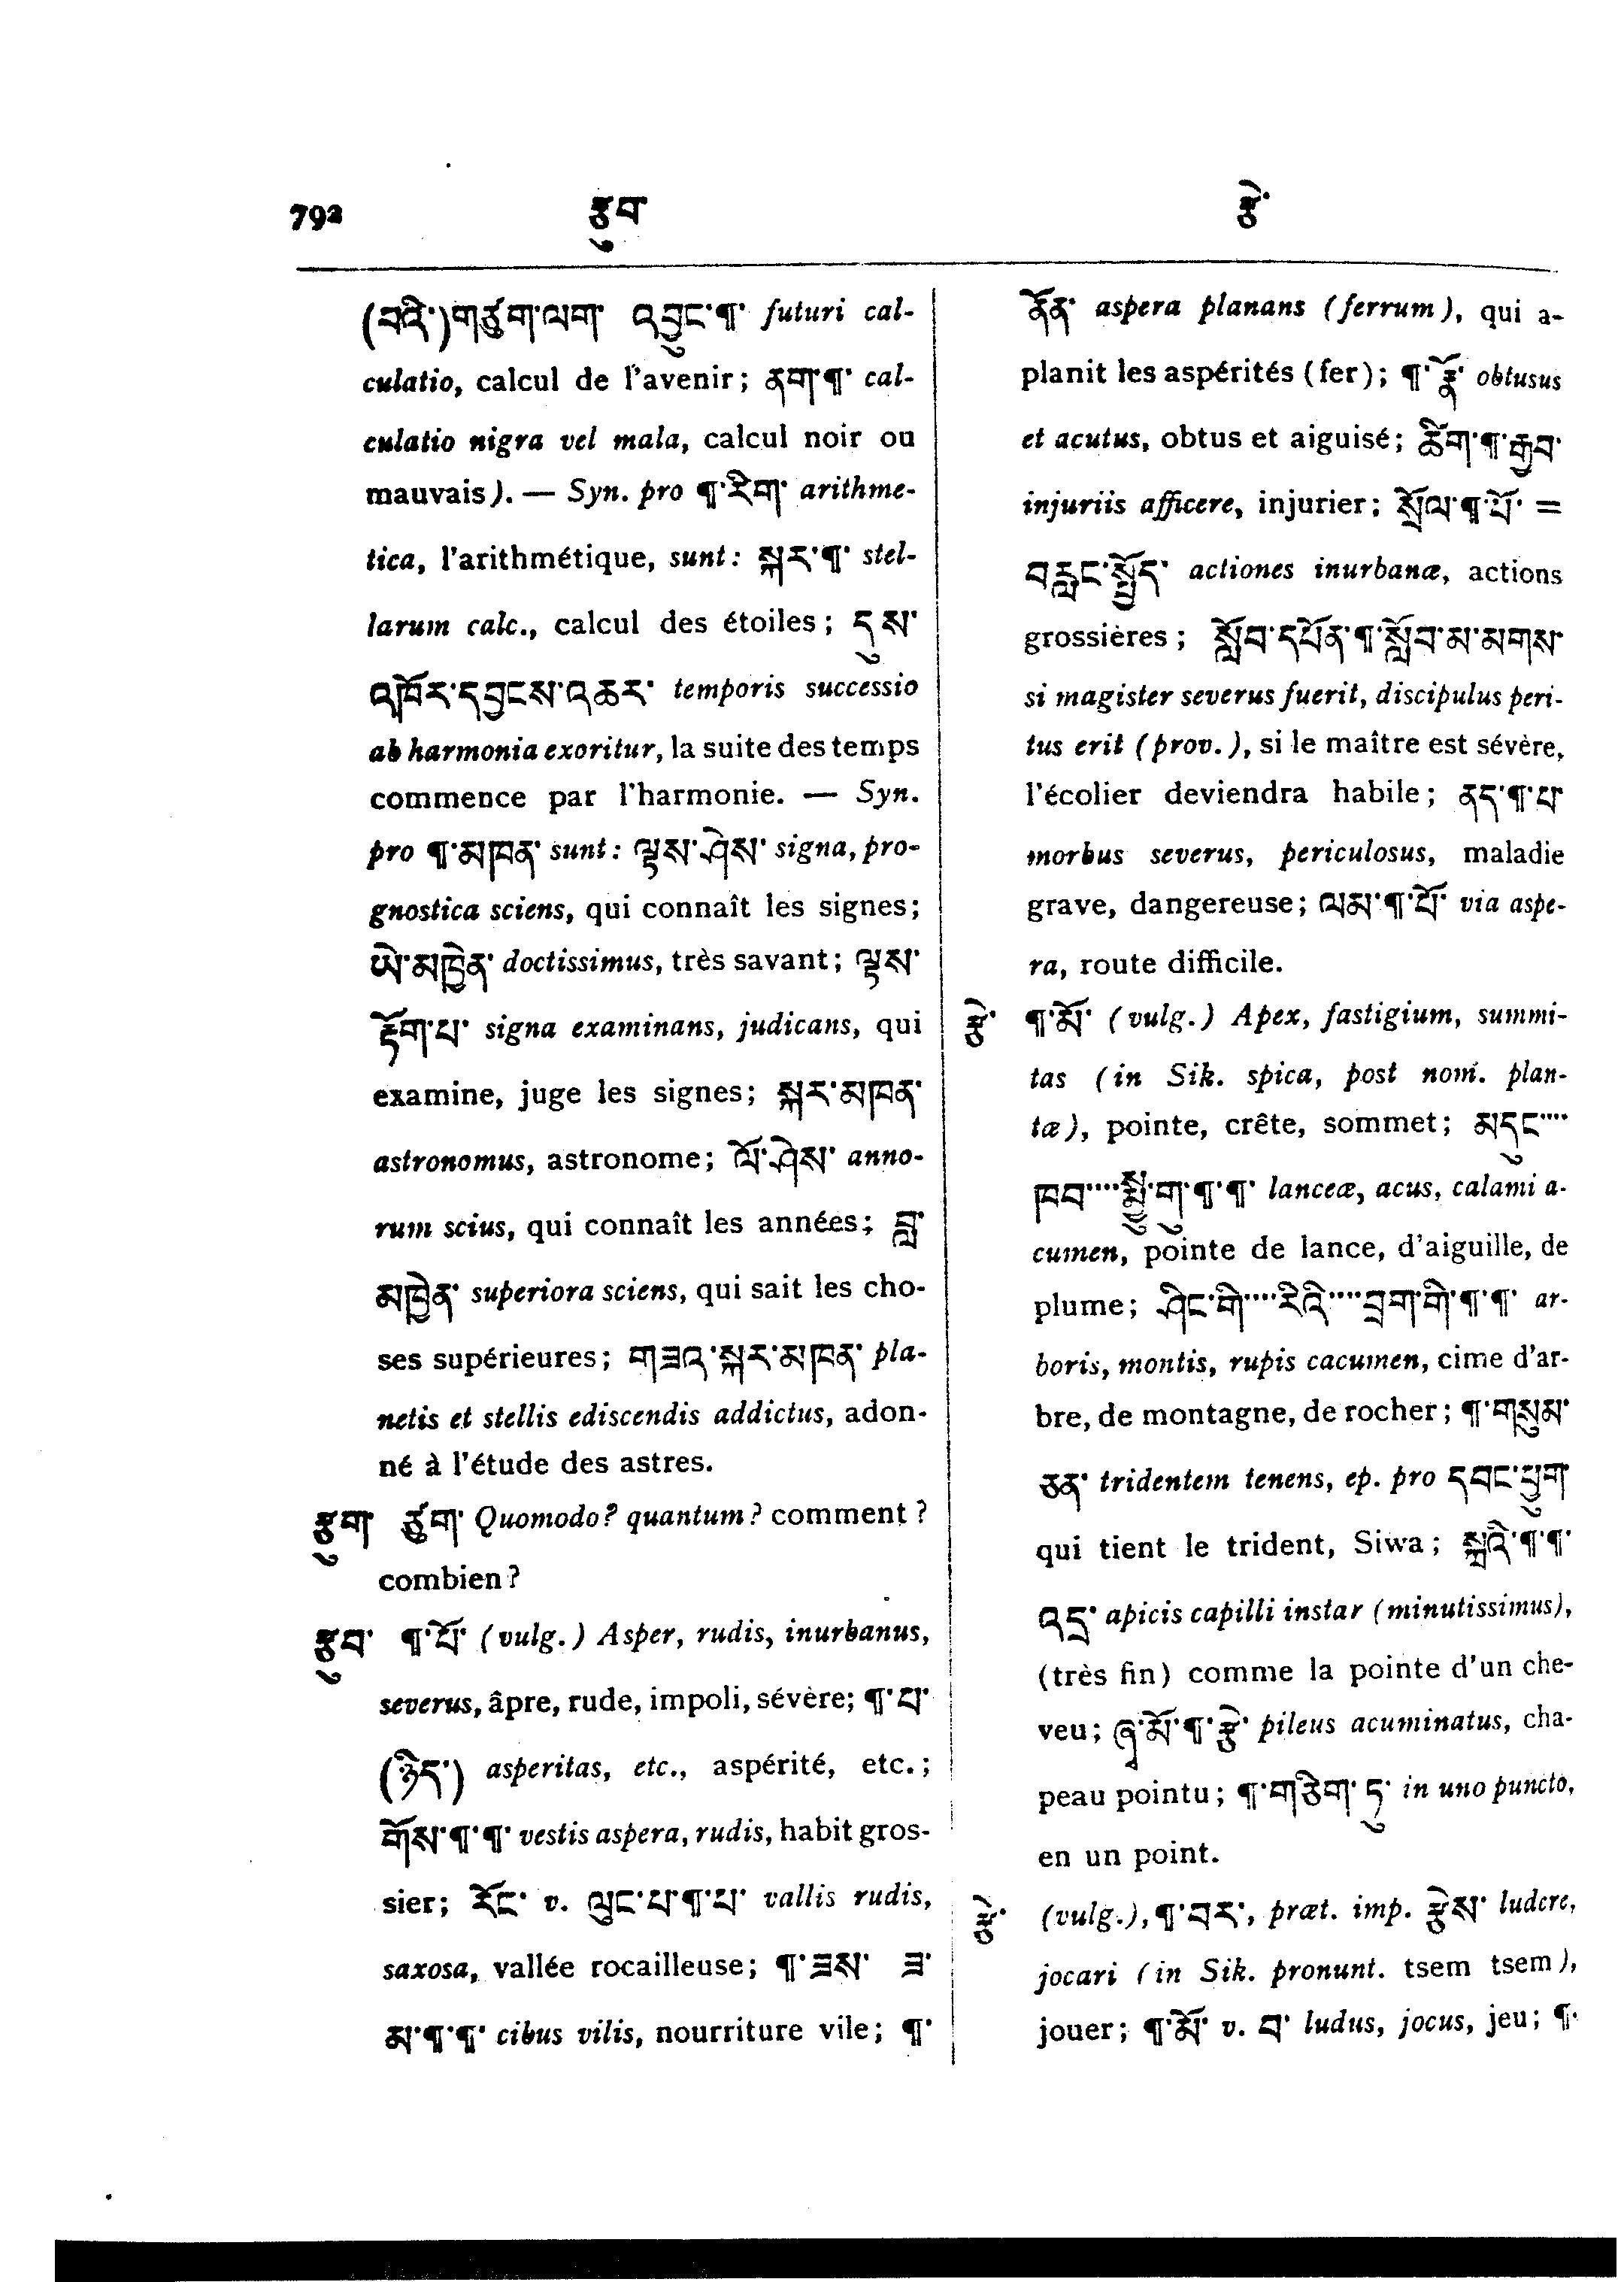 792 རྩུབ རྩེ་
(བའི་)གཙུག་ལག་ འབྱུང་¶་ futuri cal-
culatio, calcul de l'avenir; ནག་¶་ cal-
culatio nigra vel mala, calcul noir ou
mauvais). — Syn. pro ¶་རིག་ arithme-
tica, l'arithmétique, sunt: སྐར་¶་ stel-
larum calc., calcul des étoiles; དུས་
འཁོར་དབྱངས་འཆར་ temporis successio
ab harmonia exoritur, la suite des temps
commence par l'harmonie. — Syn.
pro ¶་མཁན་ sunt: ལྟས་ཤེས་ signa, pro-
gnostica sciens, qui connaît les signes;
ཡེ་མཁྱེན་ doctissimus, très savant; ལྟས་
རྟོག་པ་ signa examinans, judicans, qui
examine, juge les signes; སྐར་མཁན་
astronomus, astronome; ལོ་ཤེས་ anno-
rum scius, qui connaît les années; བླ་
མཁྱེན་ superiora sciens, qui sait les cho-
ses supérieures; གཟའ་སྐར་མཁན་ pla-
netis et stellis ediscendis addictus, adon-
né à l'étude des astres.
རྩུག་ ཙུག་ Quomodo? quantum? comment?
combien?
རྩུབ་ ¶་པོ་ (vulg.) Asper, rudis, inurbanus,
severus, âpre, rude, impoli, sévère; ¶་པ་
(ཉིད་) asperitas, etc., aspérité, etc.;
གོས་¶་¶་ vestis aspera, rudis, habit gros-
sier; རོང་ v. ལུང་པ་¶་པ་ vallis rudis,
saxosa, vallée rocailleuse; ¶་ཟས་ ཟ་
མ་¶་¶་ cibus vilis, nourriture vile; ¶་
ནོན་ aspera planans (ferrum), qui a-
planit les aspérités (fer); ¶་རྣོ་ obtusus
et acutus, obtus et aiguisé; ཚིག་¶་རྒྱབ་
injuriis afficere, injurier; སྲོལ་¶་པོ་ =
བརླང་སྤྱོད་ actiones inurbanæ, actions
grossières; སློབ་དཔོན་¶་སློབ་མ་མགས་
si magister severus fuerit, discipulus peri-
tus erit (prov.), si le maître est sévère,
l'écolier deviendra habile; ནད་¶་པ་
morbus severus, periculosus, maladie
grave, dangereuse; ལམ་¶་པོ་ via aspe-
ra, route difficile.
རྩེ་ ¶་མོ་ (vulg.) Apex, fastigium, summi-
tas (in Sik. spica, post nom. plan-
tæ), pointe, crête, sommet; མདུང་····
ཁབ་····སྨྱུ་གུ་¶་¶་ lanceæ, acus, calami a-
cumen, pointe de lance, d'aiguille, de
plume; ཤིང་གི་····རིའི་····བྲག་གི་¶་¶་ ar-
boris, montis, rupis cacumen, cime d'ar-
bre, de montagne, de rocher; ¶་གསུམ་
ཅན་ tridentem tenens, ep. pro དབང་ཕྱུག་
qui tient le trident, Siwa; སྐྲའི་¶་¶་
འདྲ་ apicis capilli instar (minutissimus),
(très fin) comme la pointe d'un che-
veu; ཞྭ་མོ་¶་རྩེ་ pileus acuminatus, cha-
peau pointu; ¶་གཅིག་ཏུ་ in uno puncto,
en un point.
རྩེ་ (vulg.), ¶་བར་, præt. imp. རྩེས་ ludere,
jocari (in Sik. pronunt. tsem tsem),
jouer; ¶་མོ་ v. བ་ ludus, jocus, jeu; ¶་